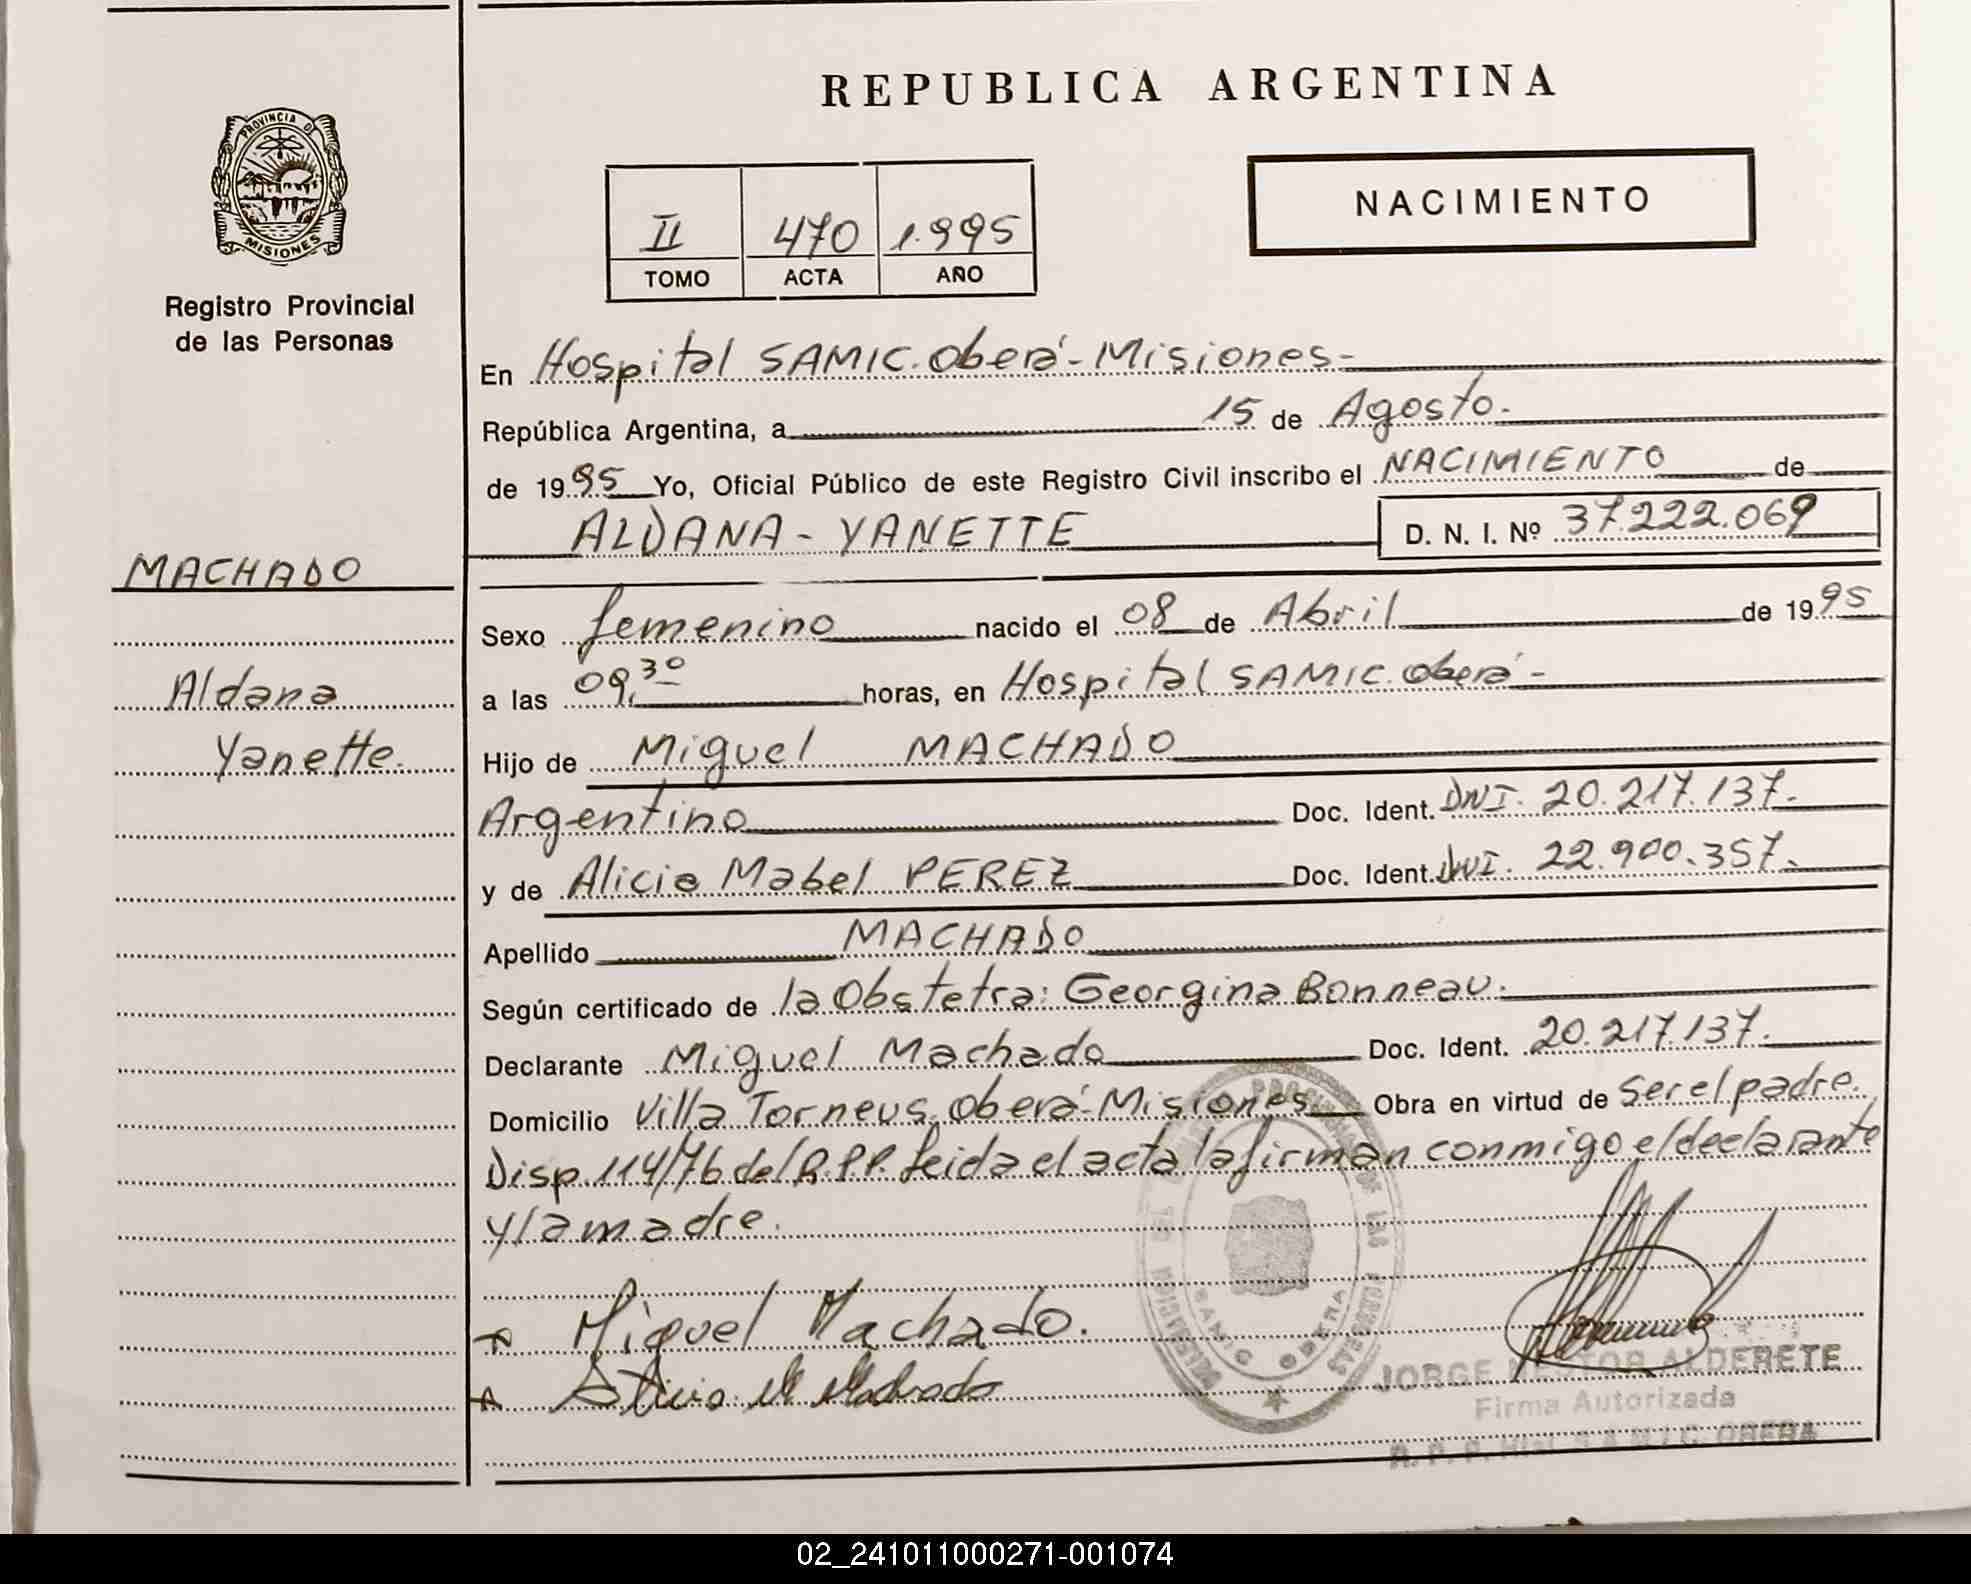 REPUBLICA ARGENTINA
PROVINCIA DE
MISIONES
Registro Provincial
de las Personas
NACIMIENTO
II 470 1.995
TOMO ACTA AÑO
En Hospital SAMIC. Oberá - Misiones -
República Argentina, a 15 de Agosto.
de 1995 Yo, Oficial Público de este Registro Civil inscribo el NACIMIENTO de
ALDANA - YANETTE D. N. I. Nº 37.222.069
MACHADO
Aldana
Yanette.
Sexo femenino nacido el 08 de Abril de 1995
a las 09,30 horas, en Hospital SAMIC. Oberá -
Hijo de Miguel MACHADO
Argentino Doc. Ident. DNI. 20.217.137.
y de Alicia Mabel PEREZ Doc. Ident. DNI. 22.900.357.
Apellido MACHADO
Según certificado de la Obstetra: Georgina Bonneau.
Declarante Miguel Machado Doc. Ident. 20.217.137.
Domicilio Villa Torneus, Oberá - Misiones Obra en virtud de ser el padre.
Disp. 114/76 del R.P.P. leida el acta la firman conmigo el declarante
y la madre.
Miguel Machado.
JORGE NESTOR ALDERETE
Firma Autorizada
R. P. P. S.A.M.I.C. OBERA
SAMIC OBERA
02_241011000271-001074